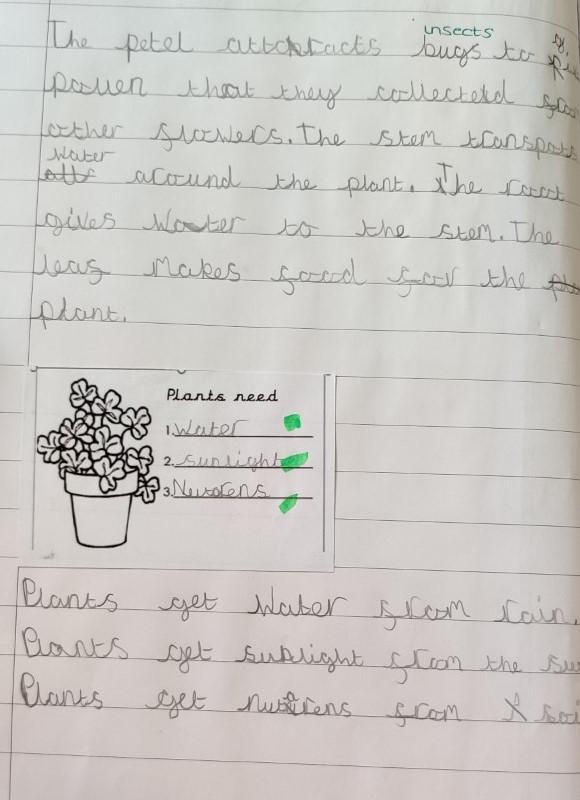 insects
The petel attchracts bugs to
pollen that they collected
other flowers. The stem transports
water
around the plant. The root
gives water to the stem. The
leas makes food for the
plant.
Plants need
1. Water
2. sunlight
3. Neutrens
Plants get water from rain.
Plants get sunlight from the su
Plants get nutrens from soi